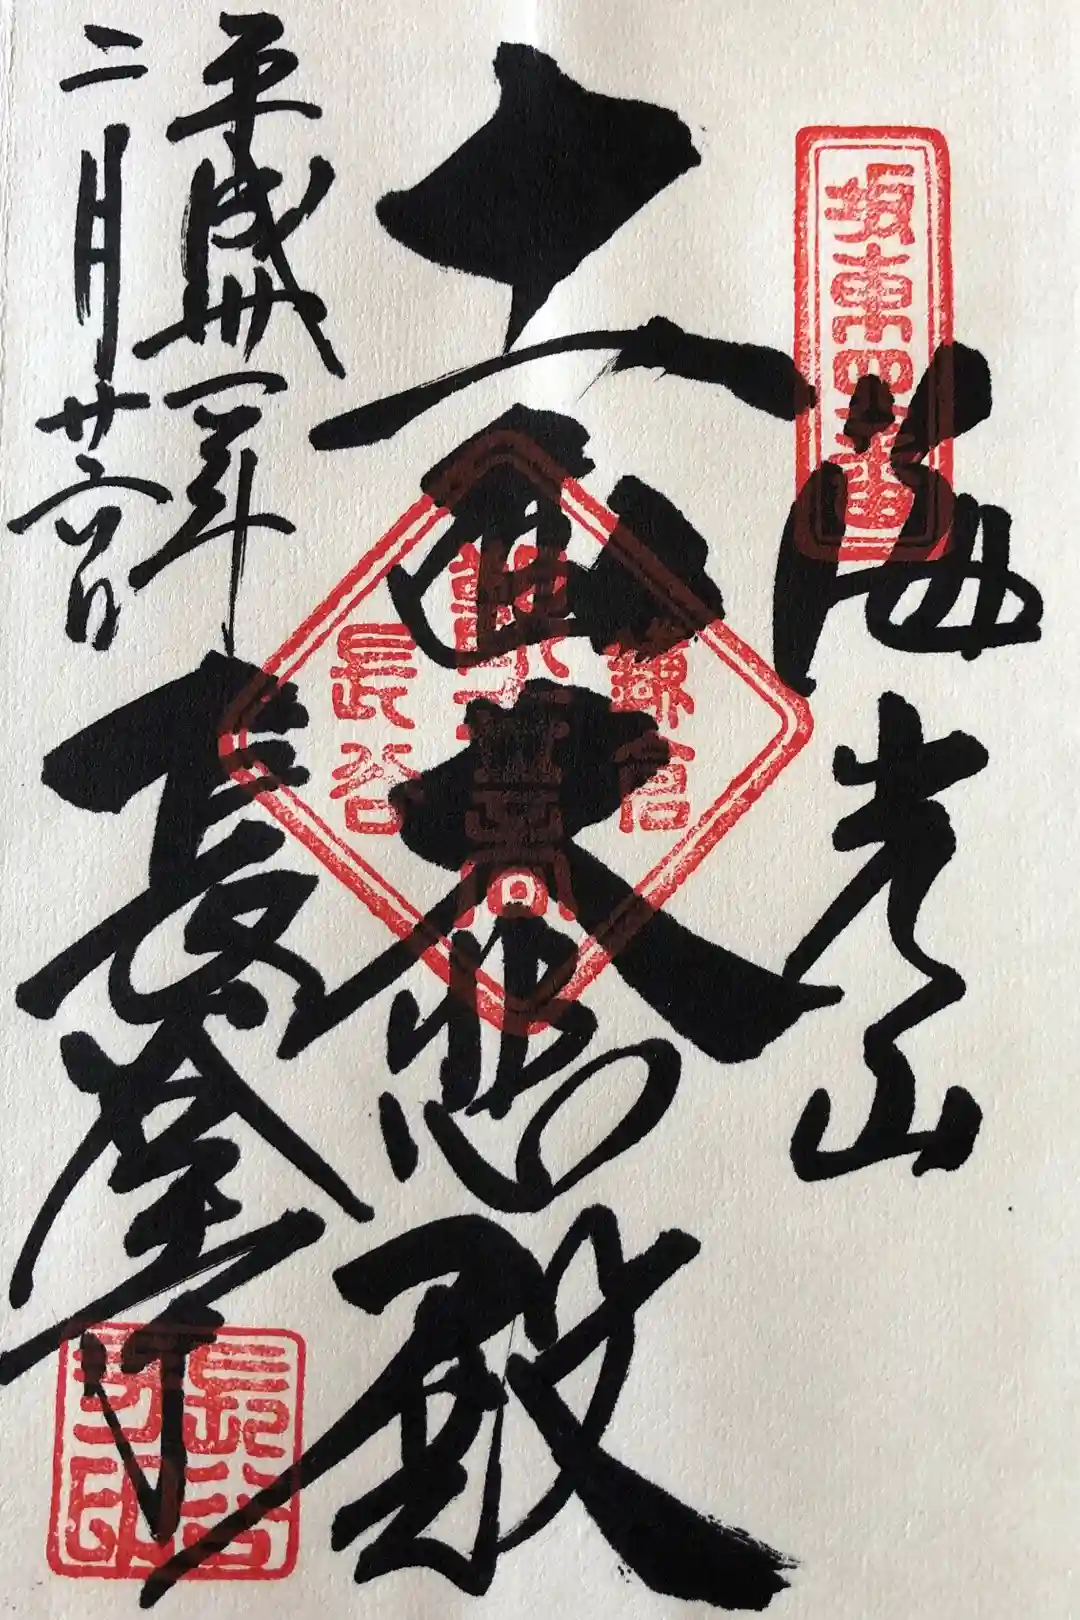 坂東四番
海光山
十一面大悲殿
鎌倉
長谷
長谷寺
平成卅一年
二月廿六日
長谷寺印